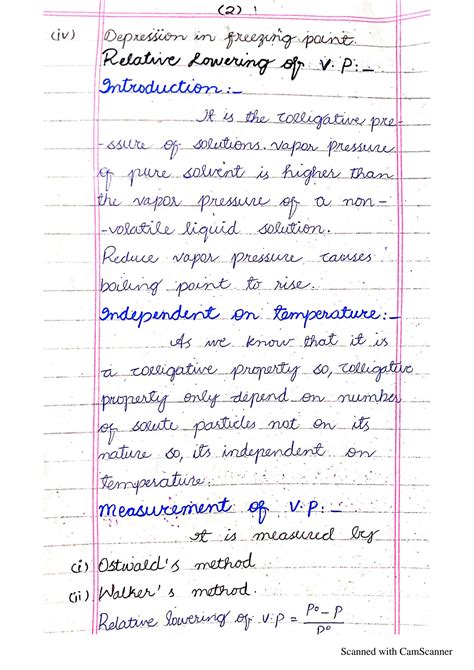 (2)
(iv) Depression in freezing point.
Relative Lowering of V.P:-
Introduction:-
It is the colligative pre-
-ssure of solutions. vapor pressure
of pure solvent is higher than
the vapor pressure of a non-
-volatile liquid solution.
Reduce vapor pressure causes
boiling point to rise.
Independent on temperature:-
As we know that it is
a colligative property so, colligative
property only depend on number
of solute particles not on its
nature so, its independent on
temperature.
Measurement of V.P:-
It is measured by
(i) Ostwald's method
(ii) Walker's method.
Relative lowering of V.P = P° - P / P°
Scanned with CamScanner